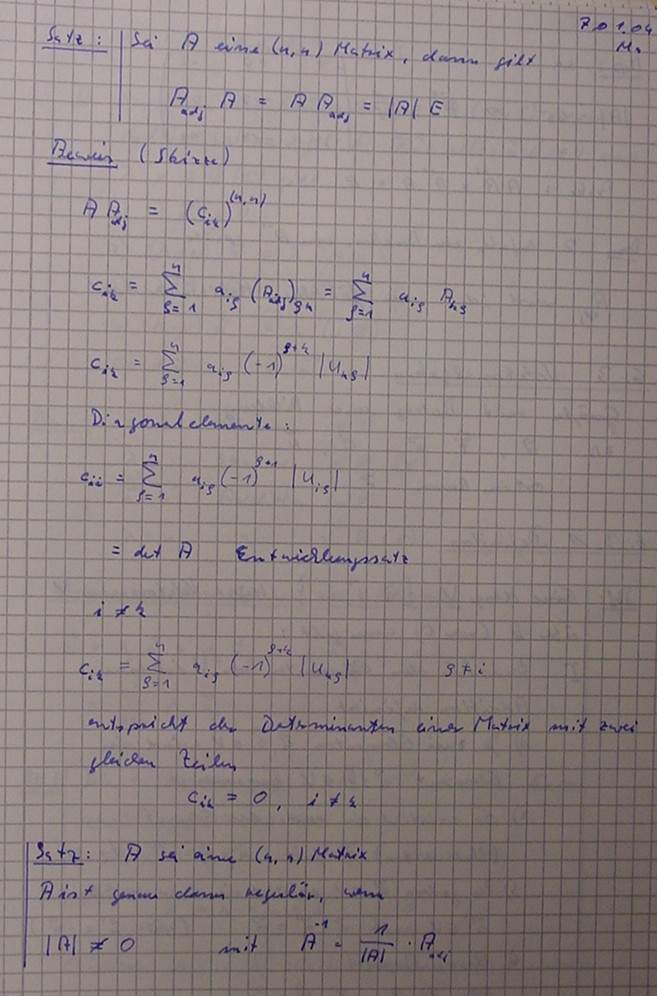 7.01.04
Satz: Sei A eine (n,n) Matrix, dann gilt
A_adj A = A A_adj = |A| E
Beweis (Skizze)
A A_adj = (c_ik)^(n,n)
c_ik = ∑_{ρ=1}^{n} a_iρ (A_adj)_ρk = ∑_{ρ=1}^{n} a_iρ A_kρ
c_ik = ∑_{ρ=1}^{n} a_iρ (-1)^{ρ+k} |U_kρ|
Diagonalelemente:
c_ii = ∑_{ρ=1}^{n} a_iρ (-1)^{ρ+i} |U_iρ|
= det A Entwicklungssatz
i ≠ k
c_ik = ∑_{ρ=1}^{n} a_iρ (-1)^{ρ+k} |U_kρ| ρ ≠ i
entspricht der Determinanten einer Matrix mit zwei
gleichen Zeilen
c_ik = 0, i ≠ k
Satz: A sei eine (n,n) Matrix
A ist genau dann regulär, wenn
|A| ≠ 0 mit A^-1 = 1/|A| · A_adj